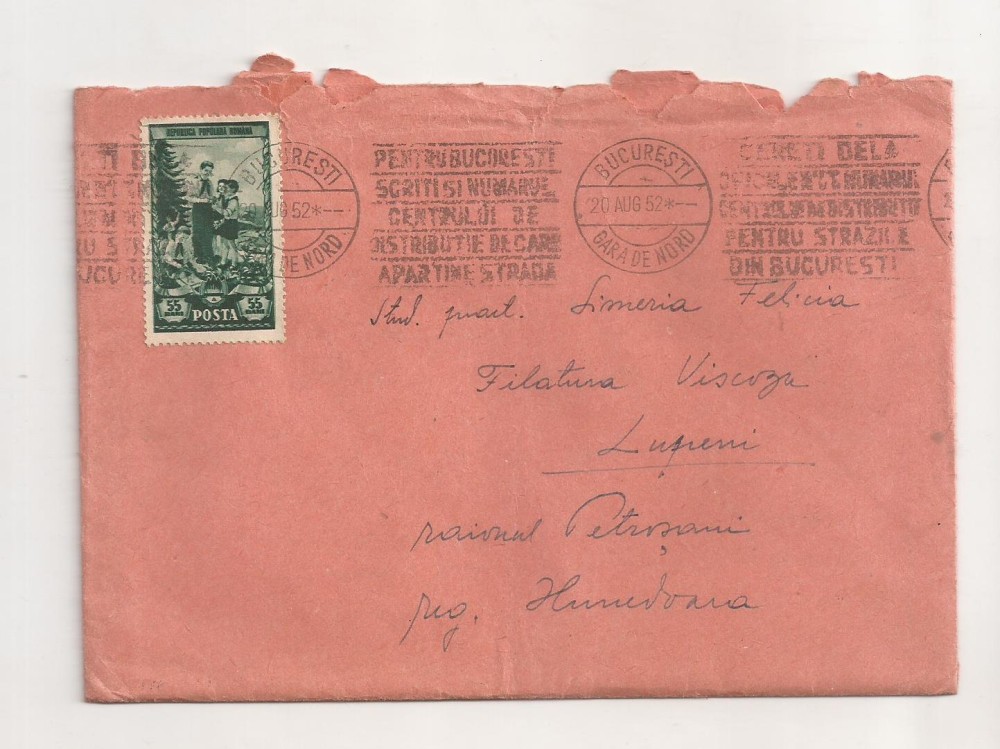 REPUBLICA POPULARA ROMANA
55 BANI POSTA 55 BANI
BUCURESTI
20 AUG 52*--
GARA DE NORD
PENTRU BUCURESTI
SCRITI SI NUMARUL
CENTRULUI DE
DISTRIBUTIE DE CARE
APARTINE STRADA
BUCURESTI
20 AUG 52*--
GARA DE NORD
CERETI DELA
NUMARUL
CENTRULUI DE DISTRIBUTIE
PENTRU STRAZILE
DIN BUCURESTI
Stud. pract. Simeria Felicia
Filatura Viscoza
Lupeni
raionul Petroșani
reg. Hunedoara